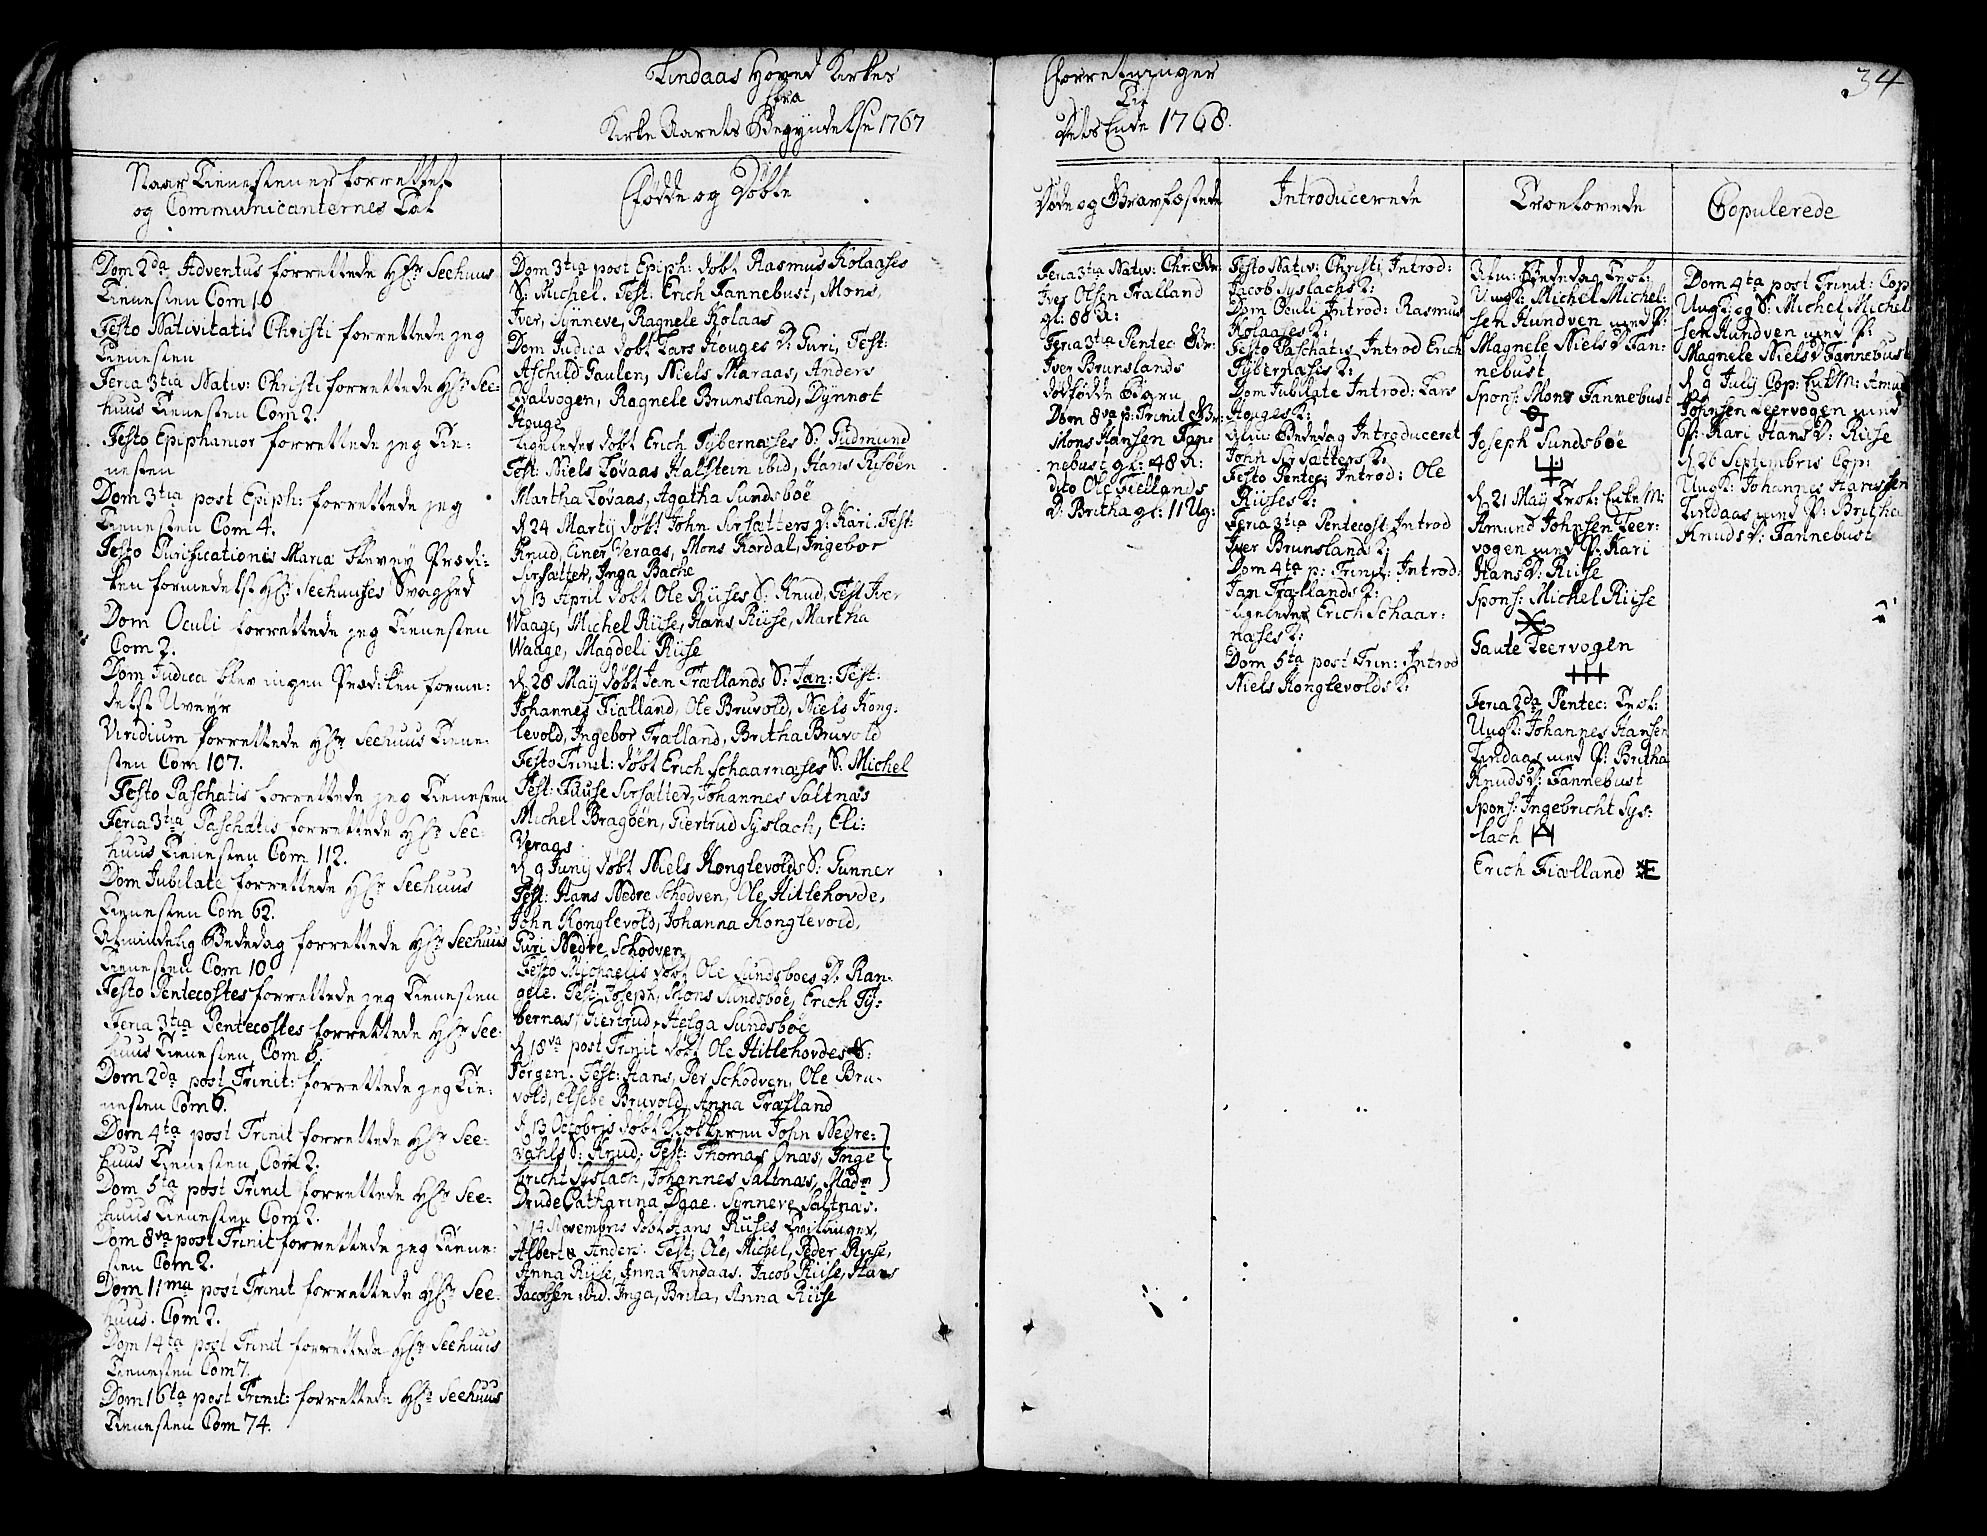 Lindaas Hoved Kirkes
fra
Kirke Aarets Begyndelse 1767
Forretninger
Til
Dets Ende 1768.
34
Naar Tienesten er forrettet
og Communicanternes Tal
Dom 2da Adventus forrettede Hr: Seehuus
Tienesten Com 10
Festo Nativitatis Christi forrettede jeg
Tienesten
Feria 3tia Nativ: Christi forrettede Hr: See-
huus Tienesten Com 2.
Festo Epiphanior forrettede jeg Tie-
nesten
Dom 3tia post Epiph: forrettede jeg
Tienesten Com 4.
Festo Purificationis Mariæ blev ej Prædi-
ken formedelst Hr: Seehuuses Svaghed
Dom Oculi forrettede jeg Tienesten
Com 2.
Dom Judica blev ingen Prædiken forme-
delst Uvejr
Viridium forrettede Hr: Seehuus Tiene-
sten Com 107.
Festo Paschatis forrettede jeg Tienesten
Feria 3tia Paschatis forrettede Hr: See-
huus Tienesten Com 112.
Dom Jubilate forrettede Hr: Seehuus
Tienesten Com 62.
Almindelig Bededag forrettede Hr: Seehuus
Tienesten Com 10
Festo Pentecostes forrettede jeg Tienesten
Feria 3tia Pentecostes forrettede Hr: See-
huus Tienesten Com 6.
Dom 2da post Trinit: forrettede jeg Tie-
nesten Com 6.
Dom 4ta post Trinit forrettede Hr: See-
huus Tienesten Com 2.
Dom 5ta post Trinit forrettede Hr: See-
huus Tienesten Com 2.
Dom 8va post Trinit forrettede jeg Tiene-
sten Com 2.
Dom 11ma post Trinit forrettede Hr: See-
huus. Com 2.
Dom 14ta post Trinit forrettede Hr: Seehuus
Tienesten Com 7.
Dom 16ta post Trinit: forrettede Hr: Seehuus
Tienesten Com 74.
Fødde og Døbte
Dom 3tia post Epiph: døbt Rasmus Kolaases
S: Michel. Test: Erich Fannebust, Mons,
Iver, Synneve, Ragnele Kolaas
Dom Judica døbt Lars Houges D: Guri, Test:
Aschild Gaulen, Niels Maraas, Anders
Dalvogen, Ragnele Brunsland, Dynnot
Houge
Ligeledes døbt Erich Tybernæses S: Gudmund
Test: Niels Lovaas Halstein ibid, Hans Risøen
Martha Lovaas, Agatha Sundsbøe
d 24 Martij døbt John Sirsætters D: Kari. Test:
Knud, Einer Veraas, Mons Kordal, Ingebor
Sirsætter, Inga Bache
d 13 April døbt Ole Riises S: Knud, Test Iver
Waage, Michel Riise, Hans Riise, Martha
Waage, Magdeli Riise
d 28 Maij døbt Jan Trællands S: Jan: Test:
Johannes Fialland, Ole Bruvold, Niels Kong-
levold, Ingebor Trælland, Britha Bruvold
Festo Trinit: døbt Erich Schaarnæses S: Michel
Test: Fuuse Sirsætter, Johannes Saltnæs
Michel Bragøen, Giertrud Syslach, Eli
Veraas
d 9 Junij døbt Niels Konglevolds S: Gunner
Test: Hans Nedre Schodven, Ole Hillehovde,
John Konglevold, Johanna Konglevold,
Guri Nedre Schodven
Festo Michaelis døbt Ole Sundsboes D. Ran-
gele. Test: Joseph, Mons Sundsbøe, Erich Ty-
bernæs, Giertrud, Helga Sundsbøe
d 18va post Trinit døbt Ole Hillehovdes S:
Jørgen. Test: Hans, Per Schodven, Ole Bru-
vold, Elsebe Bruvold, Anna Trælland
d 13 Octobris døbt Klokkeren John Nedre-
vahls S: Knud. Test: Thomas Onæs, Inge
bricht Syslach, Johannes Saltnæs, Madm
Drude Catharina Dgae. Synneve Saltnæs.
d 14 Novembris døbt Hans Riises Tvillinger,
Albert & Anders. Test; Ole, Michel, Peder Riise,
Anna Riise, Anna Lindaas. Jacob Riise, Hans
Jacobsen ibid. Inga, Brita, Anna Riise
Døde og Gravfæstede
Feria 3tia Nativ: Chr: Gr:
Iver Olsen Tralland
gl: 88 A:
Feria 3tia Pentec Gr:
Iver Brunslands
dødfødde Børn
Dom 8va p: Trinit Gr:
Mons Hansen Fan-
nebust gl: 48 A:
dito Ole Fiellands
D: Britha gl: 11 Ug:
Introducerede
Festo Nativ: Christi Introd:
Jacob Syslachs K:
Dom Pauli Introd: Rasmus
Kolaases K:
Festo Paschatis Introd Erich
Tybernæses K:
Dom Jubilate Introd: Lars
Houges K:
Alm: Bededag Introduceret
John Sirsætters K:
Festo Pentec: Introd: Ole
Riises K:
Feria 3tia Pentecost: Introd
Iver Brunslands K:
Dom 4ta p: Trinit: Introd:
Jan Trællands K:
Ligeledes Erich Schaar-
næses K:
Dom 5ta post Trin: Introd
Niels Konglevolds K:
Troelovede
Alm: Bededag Trol:
Ungk: Michel Michel-
sen Hundven med P:
Magnele Niels D Fan-
nebust
Spons: Mons Fannebust
Joseph Sundsbøe
d 21 Maij Trol: Enke M:
Amund Johnsen Leer-
vogen med P: Kari
Hans D: Riise
Spons: Michel Riise
Gaute Leervogen
Feria 2da Pentec: Trol:
Ungk: Johannes Hansen
Lindaas med P: Britha
Knuds D: Fannebust
Spons: Ingebricht Sys-
lach
Erich Fialland
Copulerede
Dom 4ta post Trinit: Cop
Ungk: og S: Michel Michel-
sen Hundven med P:
Magnele Niels D Fannebust
d 9 Julij Cop: Enk M: Amund
Johnsen Leervogen med
P: Kari Hans D: Riise
d 26 Septembris Cop:
Ungk: Johannes Hanssen
Lindaas med P: Britha
Knuds D: Fannebust